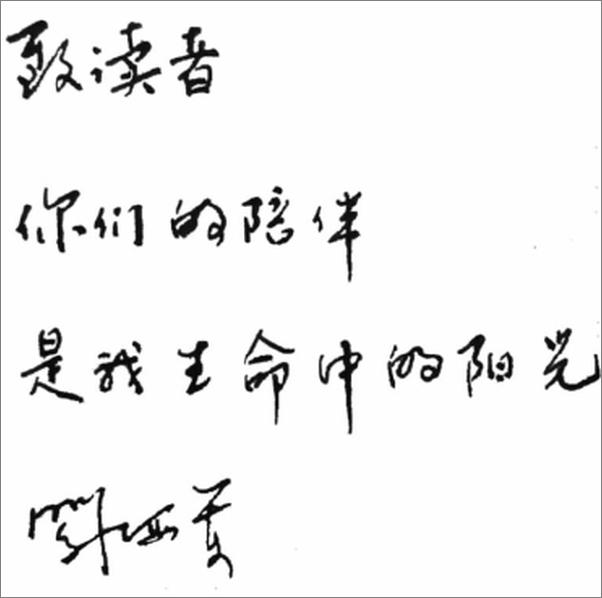 致读者
你们的陪伴
是我生命中的阳光